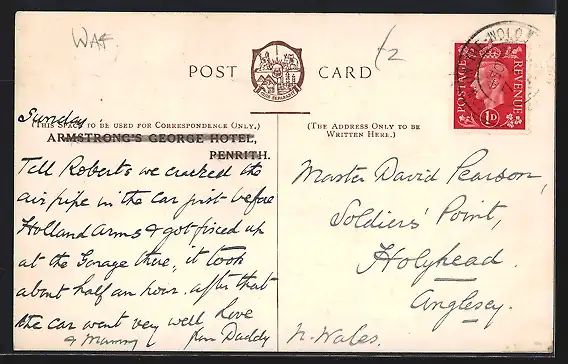 WAF
£2
POST CARD
POSTAGE REVENUE
1D
(THIS SPACE TO BE USED FOR CORRESPONDENCE ONLY.)
(THE ADDRESS ONLY TO BE
WRITTEN HERE.)
ARMSTRONG'S GEORGE HOTEL,
PENRITH.
Sunday.
Tell Roberts we cracked the
air pipe in the car just before
Holland Arms & got fixed up
at the Garage there, it took
about half an hour. after that
the car went very well Love
& Mammy from Daddy
Master David Pearson,
Soldiers' Point,
Holyhead.
Anglesey.
N. Wales.